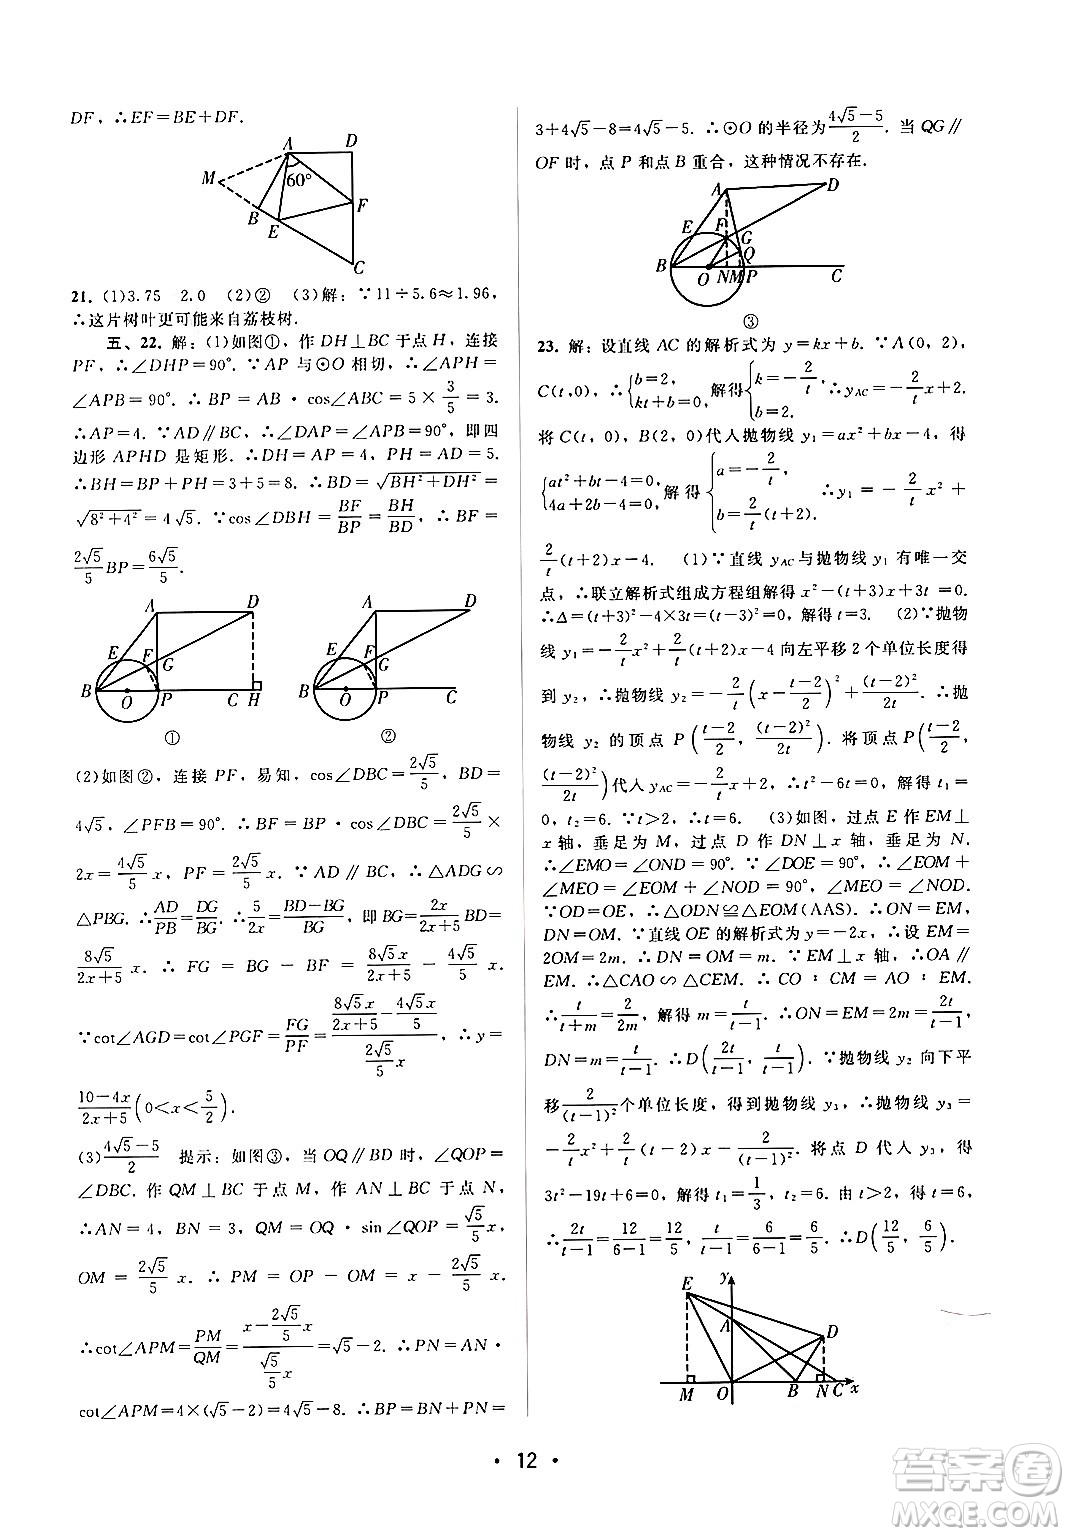 DF，∴EF=BE+DF.
A
D
M
60°
B
E
F
C
21. (1)3.75 2.0 (2)② (3)解：∵11÷5.6≈1.96，
∴这片树叶更可能来自荔枝树.
五、22. 解：(1)如图①，作 DH⊥BC 于点 H，连接
PF，∴∠DHP=90°. ∵AP 与⊙O 相切，∴∠APH=
∠APB=90°. ∴BP=AB·cos∠ABC=5×3/5=3.
∴AP=4. ∵AD∥BC，∴∠DAP=∠APB=90°，即四
边形 APHD 是矩形. ∴DH=AP=4，PH=AD=5.
∴BH=BP+PH=3+5=8. ∴BD=√(BH²+DH²)=
√(8²+4²)=4√5. ∵cos∠DBH=BF/BP=BH/BD，∴BF=
2√5/5 BP=6√5/5.
A D E F G B O P C H
①
A D E F G B O P C
②
(2)如图②，连接 PF，易知，cos∠DBC=2√5/5，BD=
4√5，∠PFB=90°. ∴BF=BP·cos∠DBC=2√5/5×
2x=4√5/5 x，PF=2√5/5 x. ∵AD∥BC，∴△ADG∽
△PBG. ∴AD/PB=DG/BG. ∴5/2x=(BD-BG)/BG，即BG=2x/(2x+5) BD=
8√5x/(2x+5). ∴FG=BG-BF=8√5x/(2x+5)-4√5/5 x.
∵cot∠AGD=cot∠PGF=FG/PF=(8√5x/(2x+5)-4√5x/5)/(2√5/5 x)，∴y=
(10-4x)/(2x+5)(0<x<5/2).
(3)(4√5-5)/2 提示：如图③，当 OQ∥BD时，∠QOP=
∠DBC. 作 QM⊥BC 于点 M，作 AN⊥BC 于点 N，
∴AN=4，BN=3，QM=OQ·sin∠QOP=√5/5 x，
OM=2√5/5 x. ∴PM=OP-OM=x-2√5/5 x.
∴cot∠APM=PM/QM=(x-2√5/5 x)/(√5/5 x)=√5-2. ∴PN=AN·
cot∠APM=4×(√5-2)=4√5-8. ∴BP=BN+PN=
3+4√5-8=4√5-5. ∴⊙O 的半径为(4√5-5)/2. 当 QG∥
OF 时，点 P 和点 B 重合，这种情况不存在.
A D E F G Q B O N M P C
③
23. 解：设直线 AC 的解析式为 y=kx+b. ∵A(0，2)，
C(t，0)，∴{b=2，kt+b=0，解得{k=-2/t，b=2. ∴y_AC=-2/t x+2.
将 C(t，0)，B(2，0)代人抛物线 y₁=ax²+bx-4，得
{at²+bt-4=0，4a+2b-4=0，解得{a=-2/t，b=2/t(t+2). ∴y₁=-2/t x²+
2/t(t+2)x-4. (1)∵直线 y_AC与抛物线 y₁ 有唯一交
点，∴联立解析式组成方程组解得 x²-(t+3)x+3t=0.
∴Δ=(t+3)²-4×3t=(t-3)²=0，解得 t=3. (2)∵抛物
线 y₁=-2/t x²+2/t(t+2)x-4 向左平移 2 个单位长度得
到 y₂，∴抛物线 y₂=-2/t(x-(t-2)/2)²+(t-2)²/2t. ∴抛
物线 y₂ 的顶点 P((t-2)/2，(t-2)²/2t). 将顶点 P((t-2)/2，
(t-2)²/2t)代人 y_AC=-2/t x+2，∴t²-6t=0，解得 t₁=
0，t₂=6. ∵t>2，∴t=6. (3)如图，过点 E 作 EM⊥
x 轴，垂足为 M，过点 D 作 DN⊥x 轴，垂足为 N.
∴∠EMO=∠OND=90°. ∵∠DOE=90°，∴∠EOM+
∠MEO=∠EOM+∠NOD=90°. ∴∠MEO=∠NOD.
∵OD=OE，∴△ODN≌△EOM(AAS). ∴ON=EM，
DN=OM. ∵直线 OE 的解析式为y=-2x，∴设 EM=
2OM=2m. ∴DN=OM=m. ∵EM⊥x 轴，∴OA∥
EM. ∴△CAO∽△CEM. ∴CO：CM=AO：EM.
∴t/(t+m)=2/2m，解得 m=t/(t-1). ∴ON=EM=2m=2t/(t-1)，
DN=m=t/(t-1). ∴D(2t/(t-1)，t/(t-1)). ∵抛物线 y₂ 向下平
移2/(t-1)²个单位长度，得到抛物线 y₃，∴抛物线 y₃=
-2/t x²+2/t(t-2)x-2/(t-1)². 将点 D 代人 y₃，得
3t²-19t+6=0，解得 t₁=1/3，t₂=6. 由 t>2，得 t=6，
∴2t/(t-1)=12/(6-1)=12/5，t/(t-1)=6/(6-1)=6/5. ∴D(12/5，6/5).
E y A D M O B N C x
· 12 ·
答案圈
MXQE.COM